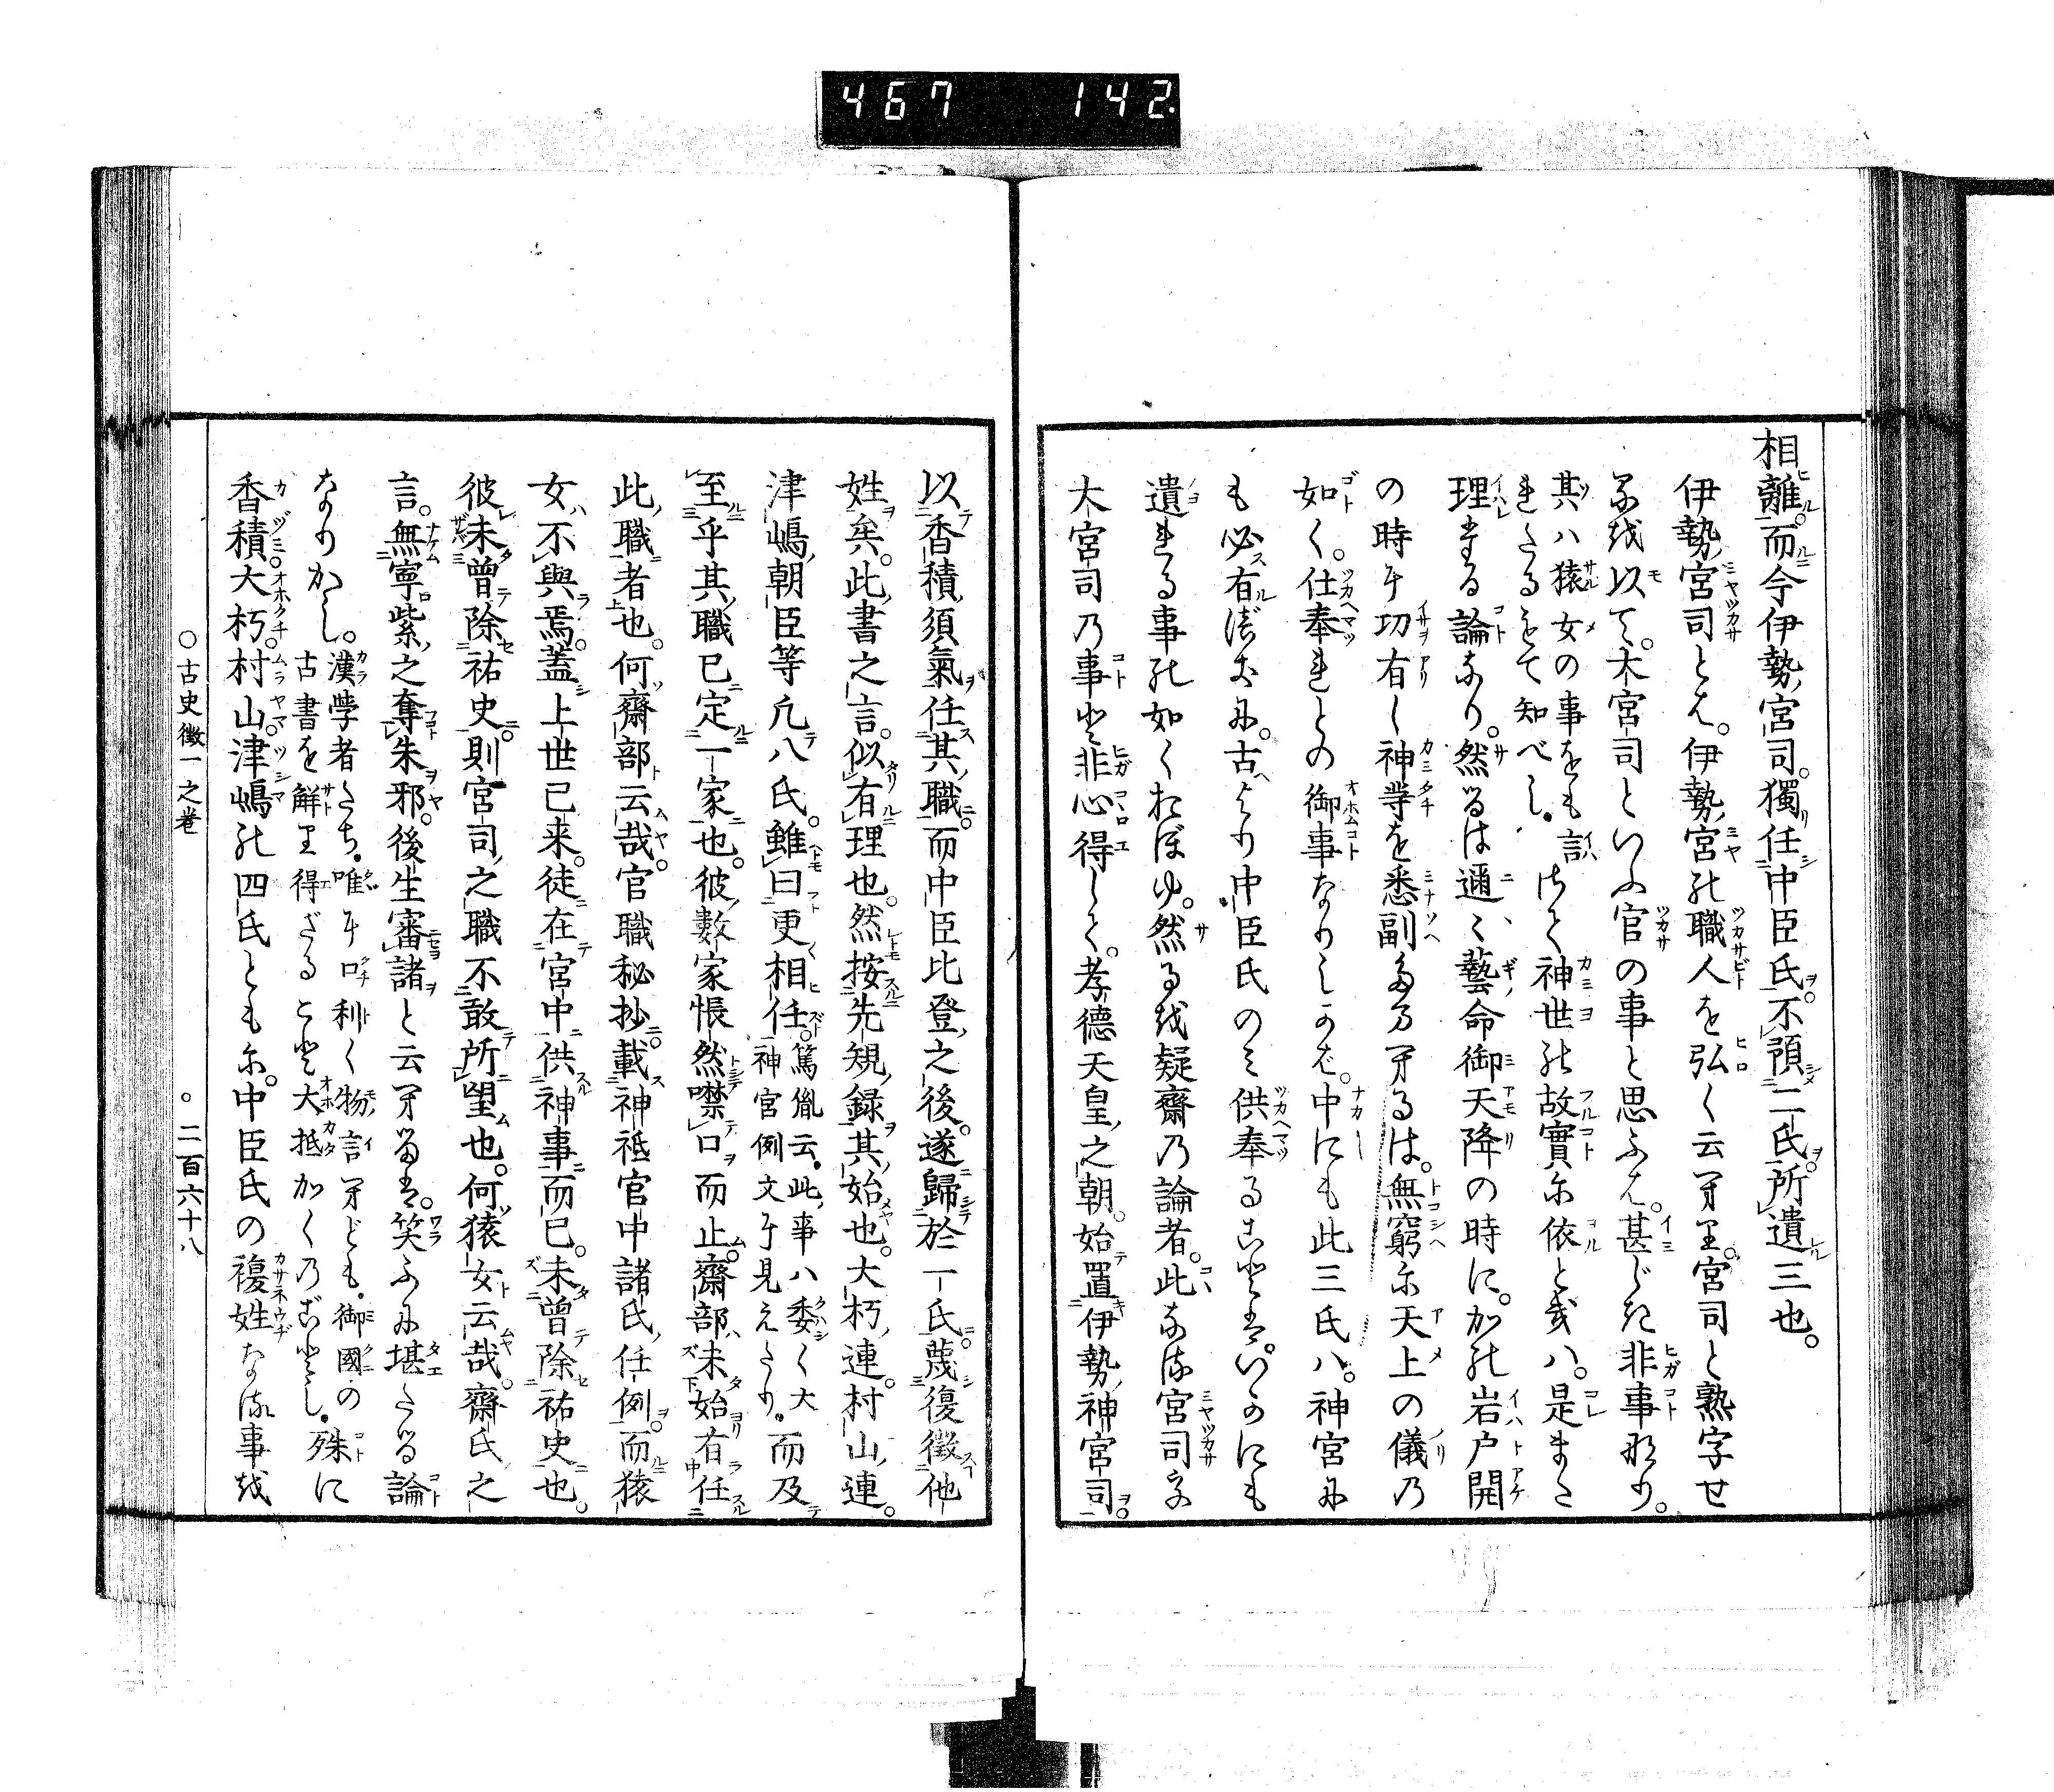 467 142
相離而今伊勢宮司獨任中臣氏。不預二氏所遺三也。
伊勢宮司とは。伊勢宮の職人を弘く云
宮司と熟字せ
るを以て。大宮司といふ官の事と思ふは。甚じき非事なり。
其ハ猿女の事をも言
知べし。
神世の故實に依
ハ。是また
理
論なり。然るは邇〻藝命御天降の時に。かの岩戸開
の時に功有し神等を悉副
るは。無窮に天上の儀の
如く。仕奉れとの御事なりしかば。中にも此三氏ハ。神宮に
も必有べきに。古へより中臣氏のみ供奉ること
いかにも
遺れる事の如くおぼゆ。然るを疑齋の論者。此なる宮司を
大宮司の事と非心得して。孝德天皇之朝。始置伊勢神宮司。
以香積須氣任其職。而中臣比登之後。遂歸於一氏。蔑復徵他
姓矣。此書之言。似有理也。然按先規錄其始也。大朽連。村山連。
津嶋朝臣等凡八氏。雖曰更相任。
篤胤云。此事ハ委く大
神宮例文に見えたり。
而及
至乎其職已定一家也。彼數家悵然噤口而止。齋部未始有任
此職者也。何齋部云哉。官職秘抄載神祗官中諸氏任例。而猿
女不與焉。蓋上世已来。徒在宮中供神事而已。未曾除祐史也。
彼未曾除祐史。則宮司之職不敢所望也。何猿女云哉。齋氏之
言。無寧紫之奪朱邪。後生審諸と云
笑ふに堪たる論
なりかし。
漢學者たち。唯に口利く物言
ども。御國の
古書を解
得ざること大抵かくのごとし。
殊に
香積大朽。村山津嶋の四氏ともに。中臣氏の複姓なる事を
○古史徵一之卷 ○二百六十八